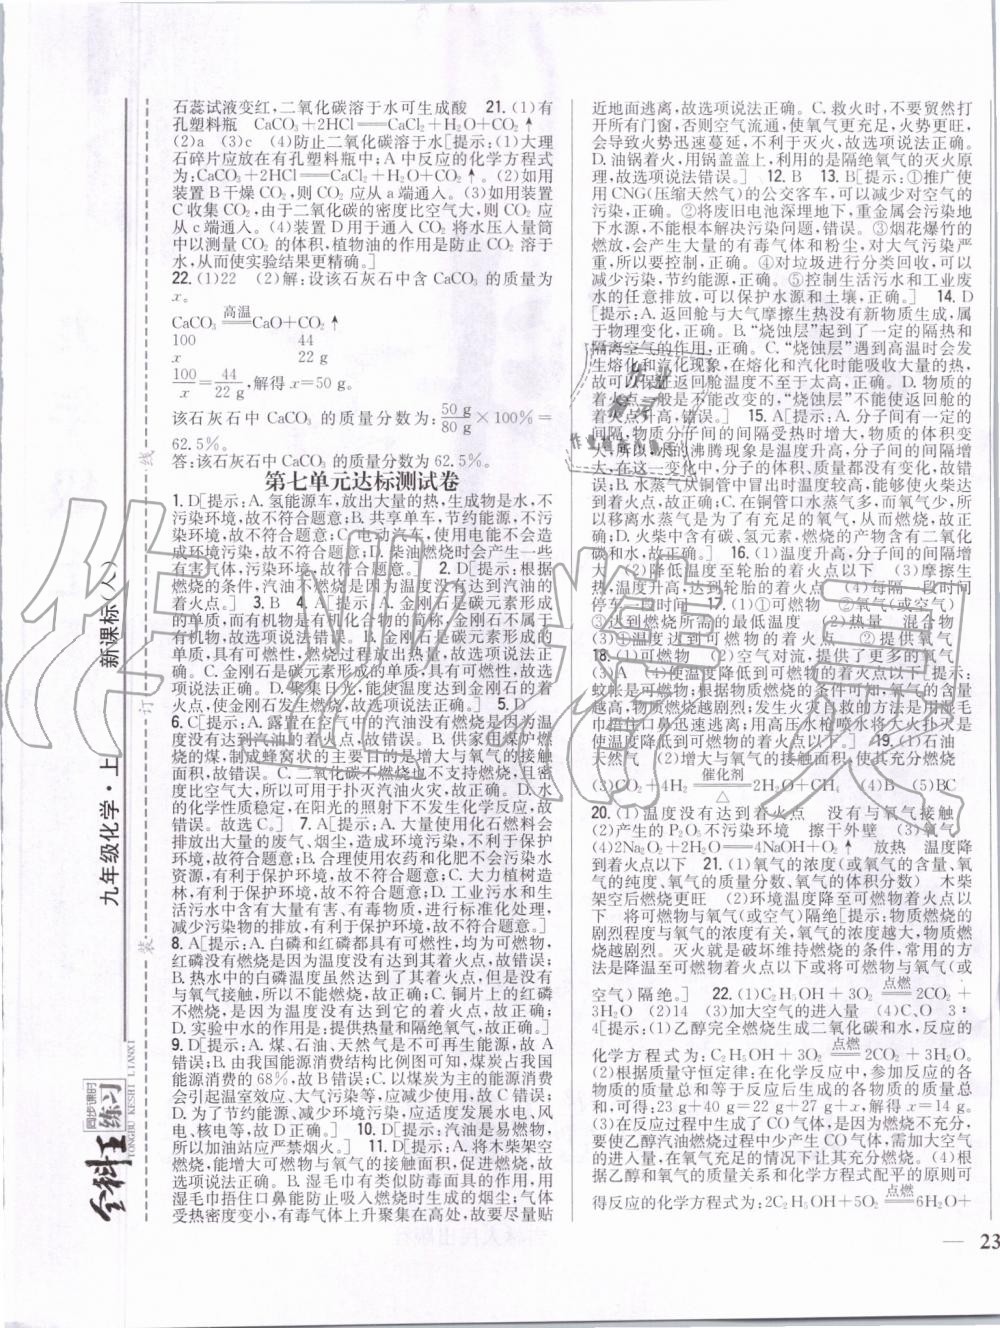 石蕊试液变红,二氧化碳溶于水可生成酸 21.(1)有
孔塑料瓶 CaCO₃+2HCl══CaCl₂+H₂O+CO₂↑
(2)a (3)c (4)防止二氧化碳溶于水[提示:(1)大理
石碎片应放在有孔塑料瓶中;A中反应的化学方程式
为:CaCO₃+2HCl══CaCl₂+H₂O+CO₂↑。(2)如用
装置B干燥CO₂,则CO₂应从a端通入。(3)如用装置
C收集CO₂,由于二氧化碳的密度比空气大,则CO₂应
从c端通入。(4)装置D用于通入CO₂将水压入量筒
中以测量CO₂的体积,植物油的作用是防止CO₂溶于
水,从而使实验结果更精确。]
22.(1)22 (2)解:设该石灰石中含CaCO₃的质量为
x。
高温
CaCO₃══CaO+CO₂↑
100 44
x 22 g
100/x=44/22 g,解得x=50 g。
该石灰石中CaCO₃的质量分数为:50 g/80 g×100%=
62.5%。
答:该石灰石中CaCO₃的质量分数为62.5%。
第七单元达标测试卷
1.D[提示:A.氢能源车,放出大量的热,生成物是水,不
污染环境,故不符合题意;B.共享单车,节约能源,不污
染环境,故不符合题意;C.电动汽车,使用电能不会造
成环境污染,故不符合题意;D.柴油燃烧时会产生一些
有害气体,污染环境,故符合题意。] 2.D[提示:根据
燃烧的条件,汽油不燃烧是因为温度没有达到汽油的
着火点。] 3.B 4.A[提示:A.金刚石是碳元素形成
的单质,而有机物是有机化合物的简称,金刚石不属于
有机物,故选项说法错误。B.金刚石是碳元素形成的
单质,具有可燃性,燃烧过程放出热量,故选项说法正
确。C.金刚石是碳元素形成的单质,具有可燃性,故选
项说法正确。D.聚集日光,能使温度达到金刚石的着
火点,使金刚石发生燃烧,故选项说法正确。] 5.D
6.C[提示:A.露置在空气中的汽油没有燃烧是因为温
度没有达到汽油的着火点,故错误。B.供家用煤炉燃
烧的煤,制成蜂窝状的主要目的是增大与氧气的接触
面积,故错误。C.二氧化碳不燃烧也不支持燃烧,且密
度比空气大,所以可用于扑灭汽油火灾,故正确。D.水
的化学性质稳定,在阳光的照射下不发生化学反应,故
错误。故选C。] 7.A[提示:A.大量使用化石燃料会
排放出大量的废气、烟尘,造成环境污染,不利于保护
环境,故符合题意;B.合理使用农药和化肥不会污染水
资源,有利于保护环境,故不符合题意;C.大力植树造
林,有利于保护环境,故不符合题意;D.工业污水和生
活污水中含有大量有害、有毒物质,进行标准化处理,
减少污染物的排放,有利于保护环境,故不符合题意。]
8.A[提示:A.白磷和红磷都具有可燃性,均为可燃物,
红磷没有燃烧是因为温度没有达到其着火点,故错误;
B.热水中的白磷温度虽然达到了其着火点,但是没有
与氧气接触,所以不能燃烧,故正确;C.铜片上的红磷
不燃烧,是因为温度没有达到它的着火点,故正确;
D.实验中水的作用是:提供热量和隔绝氧气,故正确。]
9.D[提示:A.煤、石油、天然气是不可再生能源,故A
错误;B.由我国能源消费结构比例图可知,煤炭占我国
能源消费的68%,故B错误;C.以煤炭为主的能源消费
会引起温室效应、大气污染等,应减少使用,故C错误;
D.为了节约能源、减少环境污染,应适度发展水电、风
电、核电等,故D正确。] 10.D[提示:汽油是易燃物,
所以加油站应严禁烟火。] 11.D[提示:A.将木柴架空
燃烧,能增大可燃物与氧气的接触面积,促进燃烧,故
选项说法正确。B.湿毛巾有类似防毒面具的作用,用
湿毛巾捂住口鼻能防止吸入燃烧时生成的烟尘;气体
受热密度变小,有毒气体上升聚集在高处,故要尽量贴
近地面逃离,故选项说法正确。C.救火时,不要贸然打
开所有门窗,否则空气流通,使氧气更充足,火势更旺,
会导致火势迅速蔓延,不利于灭火,故选项说法正确。
D.油锅着火,用锅盖盖上,利用的是隔绝氧气的灭火原
理,故选项说法错误。] 12.B 13.B[提示:①推广使
用CNG(压缩天然气)的公交客车,可以减少对空气的
污染,正确。②将废旧电池深埋地下,重金属会污染地
下水源,不能根本解决污染问题,错误。③烟花爆竹的
燃放,会产生大量的有毒气体和粉尘,对大气污染严
重,所以要控制,正确。④对垃圾进行分类回收,可以
减少污染,节约能源,正确。⑤控制生活污水和工业废
水的任意排放,可以保护水源和土壤,正确。] 14.D
[提示:A.返回舱与大气摩擦生热没有新物质生成,属
于物理变化,正确。B.“烧蚀层”起到了一定的隔热和
隔离空气的作用,正确。C.“烧蚀层”遇到高温时会发
生熔化和汽化现象,在熔化和汽化时能吸收大量的热,
故可以保证返回舱温度不至于太高,正确。D.物质的
着火点一般是不能改变的,“烧蚀层”不能使返回舱的
着火点升高,错误。] 15.A[提示:A.分子间有一定的
间隔;物质分子间的间隔受热时增大,物质的体积变
大,所以,水的沸腾现象是温度升高,分子间的间隔增
大,在这一变化中,分子的体积、质量都没有变化,故错
误;B.水蒸气从铜管中冒出时温度较高,能够使火柴达
到着火点,故正确;C.在铜管口水蒸气多,而氧气少,所
以移离水蒸气是为了有充足的氧气,从而燃烧,故正
确;D.火柴中含有碳、氢元素,燃烧的产物含有二氧化
碳和水,故正确。] 16.(1)温度升高,分子间的间隔增
大 (2)降低温度至轮胎的着火点以下 (3)摩擦生
热,温度升高,达到轮胎的着火点 (4)每隔一段时间
停车一段时间 17.(1)①可燃物 ②氧气(或空气)
③达到燃烧所需的最低温度 (2)热量 混合物
(3)①温度达到可燃物的着火点 ②提供氧气
18.(1)可燃物 (2)空气对流,提供了更多的氧气
(3)A (4)使温度降低到可燃物的着火点以下[提示:
蚊帐是可燃物;根据物质燃烧的条件可知,氧气的含量
越高,物质燃烧越剧烈;发生火灾自救的方法是用湿毛
巾捂住口鼻迅速逃离;用高压水枪喷水将大火扑灭是
使温度降低到可燃物的着火点以下。] 19.(1)石油
天然气 (2)增大与氧气的接触面积,使其充分燃烧
催化剂
(3)CO₂+4H₂══2H₂O+CH₄ (4)B (5)BC
△
20.(1)温度没有达到着火点 没有与氧气接触
(2)产生的P₂O₅不污染环境 擦干外壁 (3)氧气
(4)2Na₂O₂+2H₂O══4NaOH+O₂↑ 放热 温度降
到着火点以下 21.(1)氧气的浓度(或氧气的含量、氧
气的纯度、氧气的质量分数、氧气的体积分数) 木柴
架空后燃烧更旺 (2)环境温度降至可燃物着火点以
下 将可燃物与氧气(或空气)隔绝[提示:物质燃烧的
剧烈程度与氧气的浓度有关,氧气的浓度越大,物质燃
烧越剧烈。灭火就是破坏维持燃烧的条件,常用的方
法是降温至可燃物着火点以下或将可燃物与氧气(或
点燃
空气)隔绝。] 22.(1)C₂H₅OH+3O₂══2CO₂+
3H₂O (2)14 (3)加大空气的进入量 (4)C、O 3∶
4[提示:(1)乙醇完全燃烧生成二氧化碳和水,反应的
点燃
化学方程式为:C₂H₅OH+3O₂══2CO₂+3H₂O。
(2)根据质量守恒定律:在化学反应中,参加反应的各
物质的质量总和等于反应后生成的各物质的质量总
和,可得:23 g+40 g=22 g+27 g+x,解得x=14 g。
(3)在反应过程中生成了CO气体,是因为燃烧不充分,
要使乙醇汽油燃烧过程中少产生CO气体,需加大空气
的进入量,在氧气充足的情况下让其充分燃烧。(4)根
据乙醇和氧气的质量关系和化学方程式配平的原则可
点燃
得反应的化学方程式为:2C₂H₅OH+5O₂══6H₂O+
— 23
九年级化学·上 新课标(人)
全科王
同步课时
练习
TONGBU KESHI LIANXI
装
订
线
作业精灵
作业
精灵